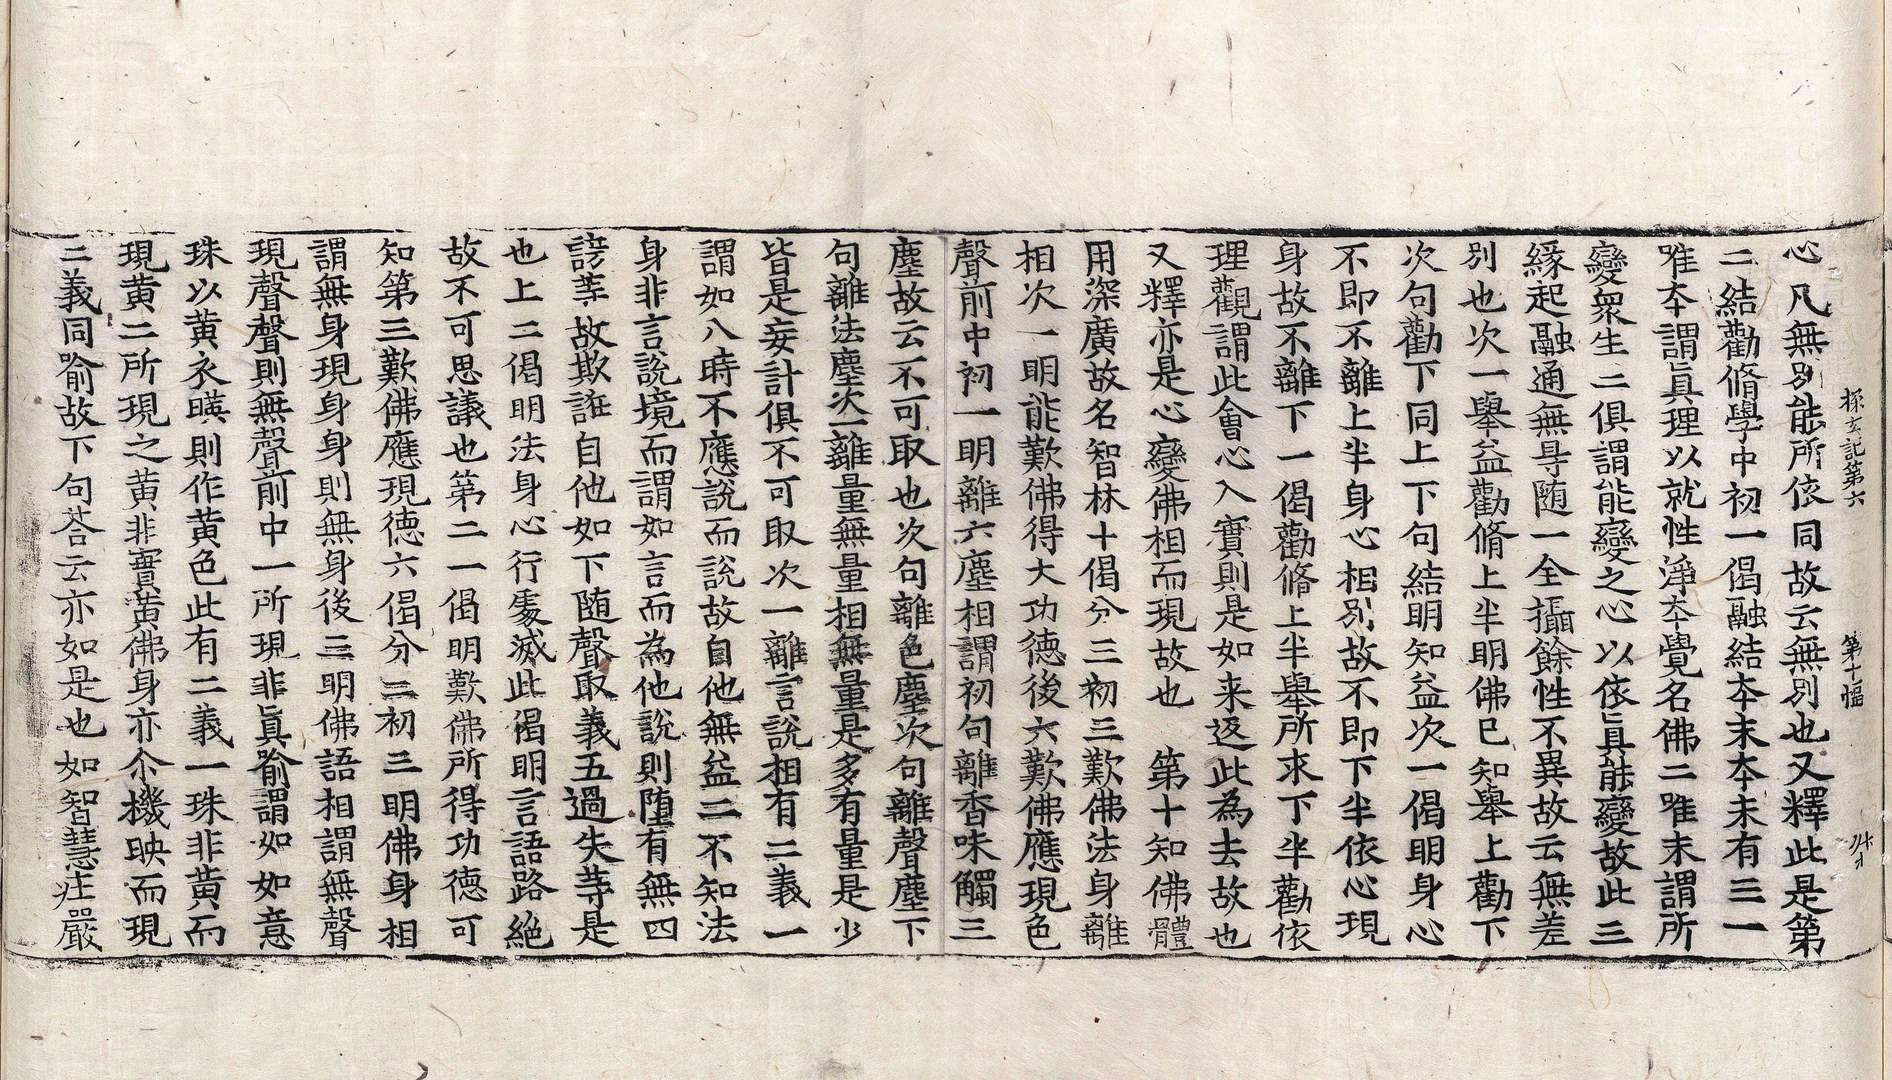 探玄記第六　第十幅
心凡無別能所依同故云無別也又釋此是第
二結勸脩學中初一偈融結夲末夲末有三一
唯夲謂眞理以就性淨夲覺名佛二唯末謂所
變衆生二俱謂能變之心以依眞能變故此三
緣起融通無㝵随一全攝餘性不異故云無差
別也次一舉益勸脩上半明佛已知舉上勸下
次句勸下同上下句結明知益次一偈明身心
不即不離上半身心相別故不即下半依心現
身故不離下一偈勸脩上半舉所求下半勸依
理觀謂此會心入實則是如来返此為去故也
又釋亦是心變佛相而現故也　第十知佛體
用深廣故名智林十偈分三初三歎佛法身離
相次一明能歎佛得大功德後六歎佛應現色
聲前中初一明離六塵相謂初句離香味觸三
塵故云不可取也次句離色塵次句離聲塵下
句離法塵次一離量無量相無量是多有量是少
皆是妄計俱不可取次一離言說相有二義一
謂如八時不應說而說故自他無益二不知法
身非言說境而謂如言而為他說則墮有無四
謗䓁故欺誑自他如下随聲取義五過失䓁是
也上二偈明法身心行處滅此偈明言語路絕
故不可思議也第二一偈明歎佛所得功德可
知第三歎佛應現德六偈分三初三明佛身相
謂無身現身身則無身後三明佛語相謂無聲
現聲聲則無聲前中一所現非眞喻謂如如意
珠以黄衣暎則作黄色此有二義一珠非黄而
現黄二所現之黄非實黄佛身亦尒機映而現
二義同喻故下句荅云亦如是也如智慧庄嚴